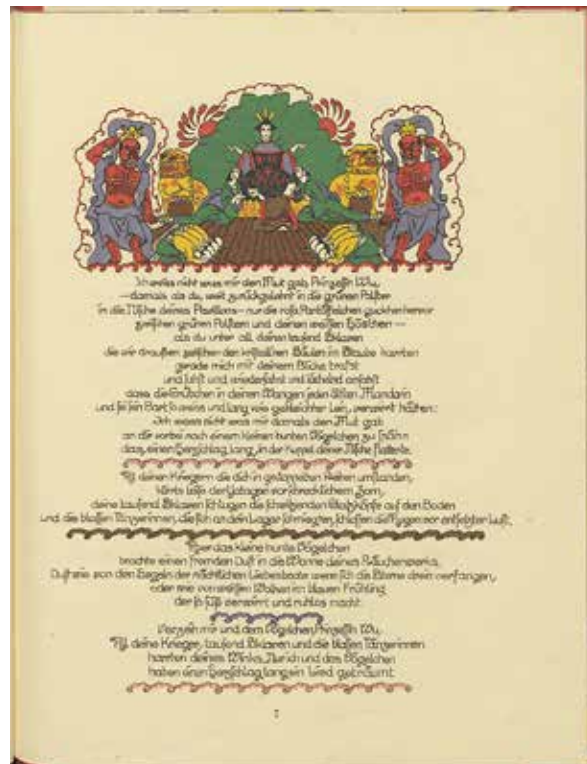 Ich weiss nicht was mir den Mut gab, Prinzessin Wu,
—damals als du, weit zurückgelehnt in die grünen Polster
in die Nische deines Pavillons— nur die rosa Pantöffelchen guckten hervor
zwischen grünen Polstern und deinen weissen Höschen —
als du unter all deinen tausend Sklaven
die wir draußen zwischen den kristallnen Säulen im Staube harrten
gerade mich mit deinem Blicke trafst
und sahst und wiedersahst und lächelnd ansahst
dass die Grübchen in deinen Wangen jeden alten Mandarin
und sei sein Bart so weiss und lang wie gebleichter Lein, verwirrt hätten:
Ich weiss nicht was mir damals den Mut gab
an dir vorbei nach einem kleinen bunten Vögelchen zu
das, einen Herzschlag lang, in der Kuppel deiner Nische flatterte.
All deinen Kriegern die dich in Reihen umstanden,
klirrte leise der Yatagan vor schrecklichem Zorn,
deine tausend Sklaven schlugen die Köpfe auf den Boden
und die blassen Tänzerinnen, die sich an dein Lager schmiegten, schlossen die Augen vor entsetzter Lust.
Aber das kleine bunte Vögelchen
brachte einen fremden Duft in die Wonne deines Räucherwerks,
Duft wie von den Segeln der nächtlichen Liebesboote wenn sich die Sterne drein verfangen,
oder wie von weissen Wolken im blauen Frühling
der so süß verwirrt und ruhlos macht.
Verzeih mir und dem Vögelchen, Prinzessin Wu.
All deine Krieger, tausend Sklaven und die blassen Tänzerinnen
harrten deines Winks. Nur ich und das Vögelchen
haben einen Herzschlag lang ein Lied geträumt.
7